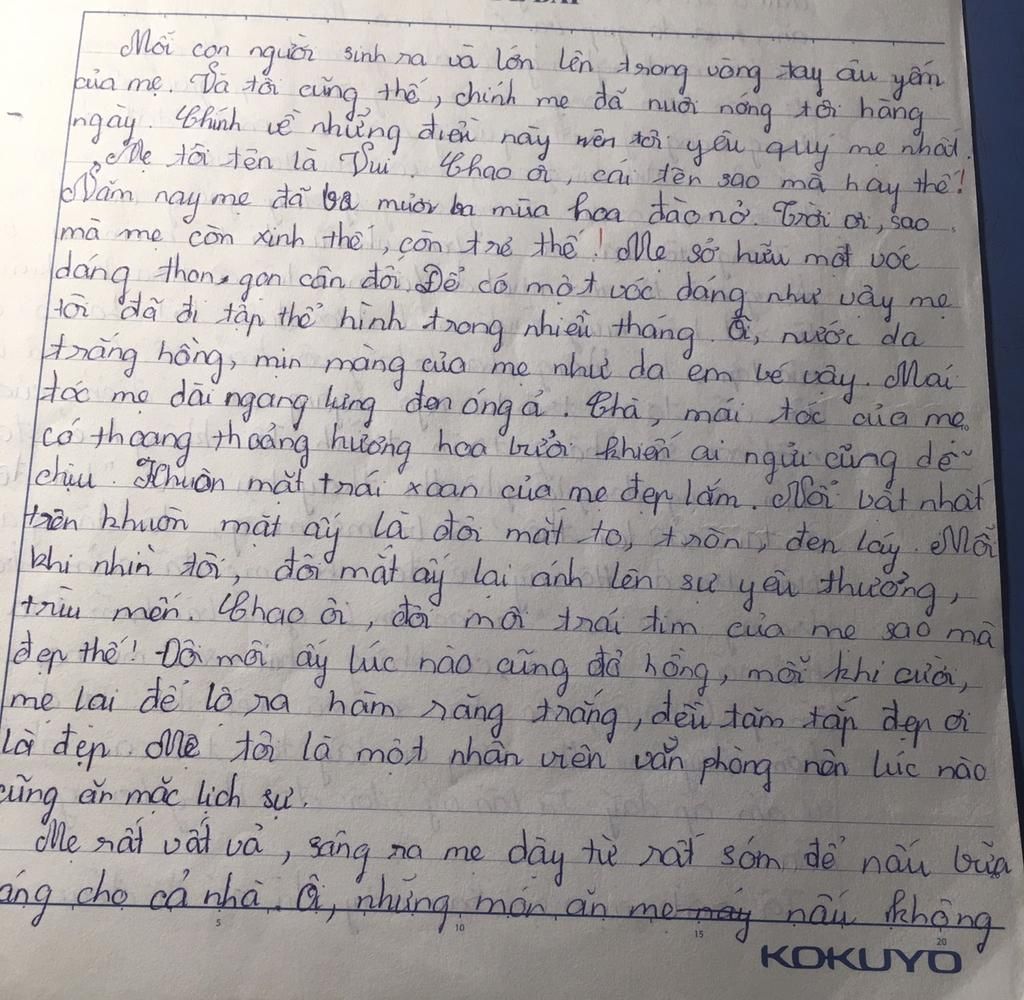 Mỗi con người sinh ra và lớn lên trong vòng tay âu yếm
của mẹ. Và tôi cũng thế, chính mẹ đã nuôi nóng tôi hàng
ngày. Chính về những điều này nên tôi yêu quý mẹ nhất.
Mẹ tôi tên là Vui. Chao ôi, cái tên sao mà hay thế!
Năm nay mẹ đã ba mươi ba mùa hoa đào nở. Trời ơi, sao
mà mẹ còn xinh thế, còn trẻ thế! Mẹ sở hữu một vóc
dáng thon gọn cân đối. Để có một vóc dáng như vậy mẹ
tôi đã đi tập thể hình trong nhiều tháng. Ôi, nước da
trắng hồng, mịn màng của mẹ như da em bé vậy. Mái
tóc mẹ dài ngang lưng đen óng ả. Chà, mái tóc của mẹ
có thoang thoảng hương hoa bưởi khiến ai ngửi cũng dễ
chịu. Khuôn mặt trái xoan của mẹ đẹp lắm. Nổi bật nhất
trên khuôn mặt ấy là đôi mắt to, tròn, đen láy. Mỗi
khi nhìn tôi, đôi mắt ấy lại ánh lên sự yêu thương,
trìu mến. Chao ôi, đôi môi trái tim của mẹ sao mà
đẹp thế! Đôi môi ấy lúc nào cũng đỏ hồng, mỗi khi cười,
mẹ lại để lộ ra hàm răng trắng, đều tăm tắp đẹp ơi
là đẹp. Mẹ tôi là một nhân viên văn phòng nên lúc nào
cũng ăn mặc lịch sự.
Mẹ rất vất vả, sáng ra mẹ dậy từ rất sớm để nấu bữa
áng cho cả nhà. Ôi, những món ăn mẹ nấu không
5 10 15 20
KOKUYO